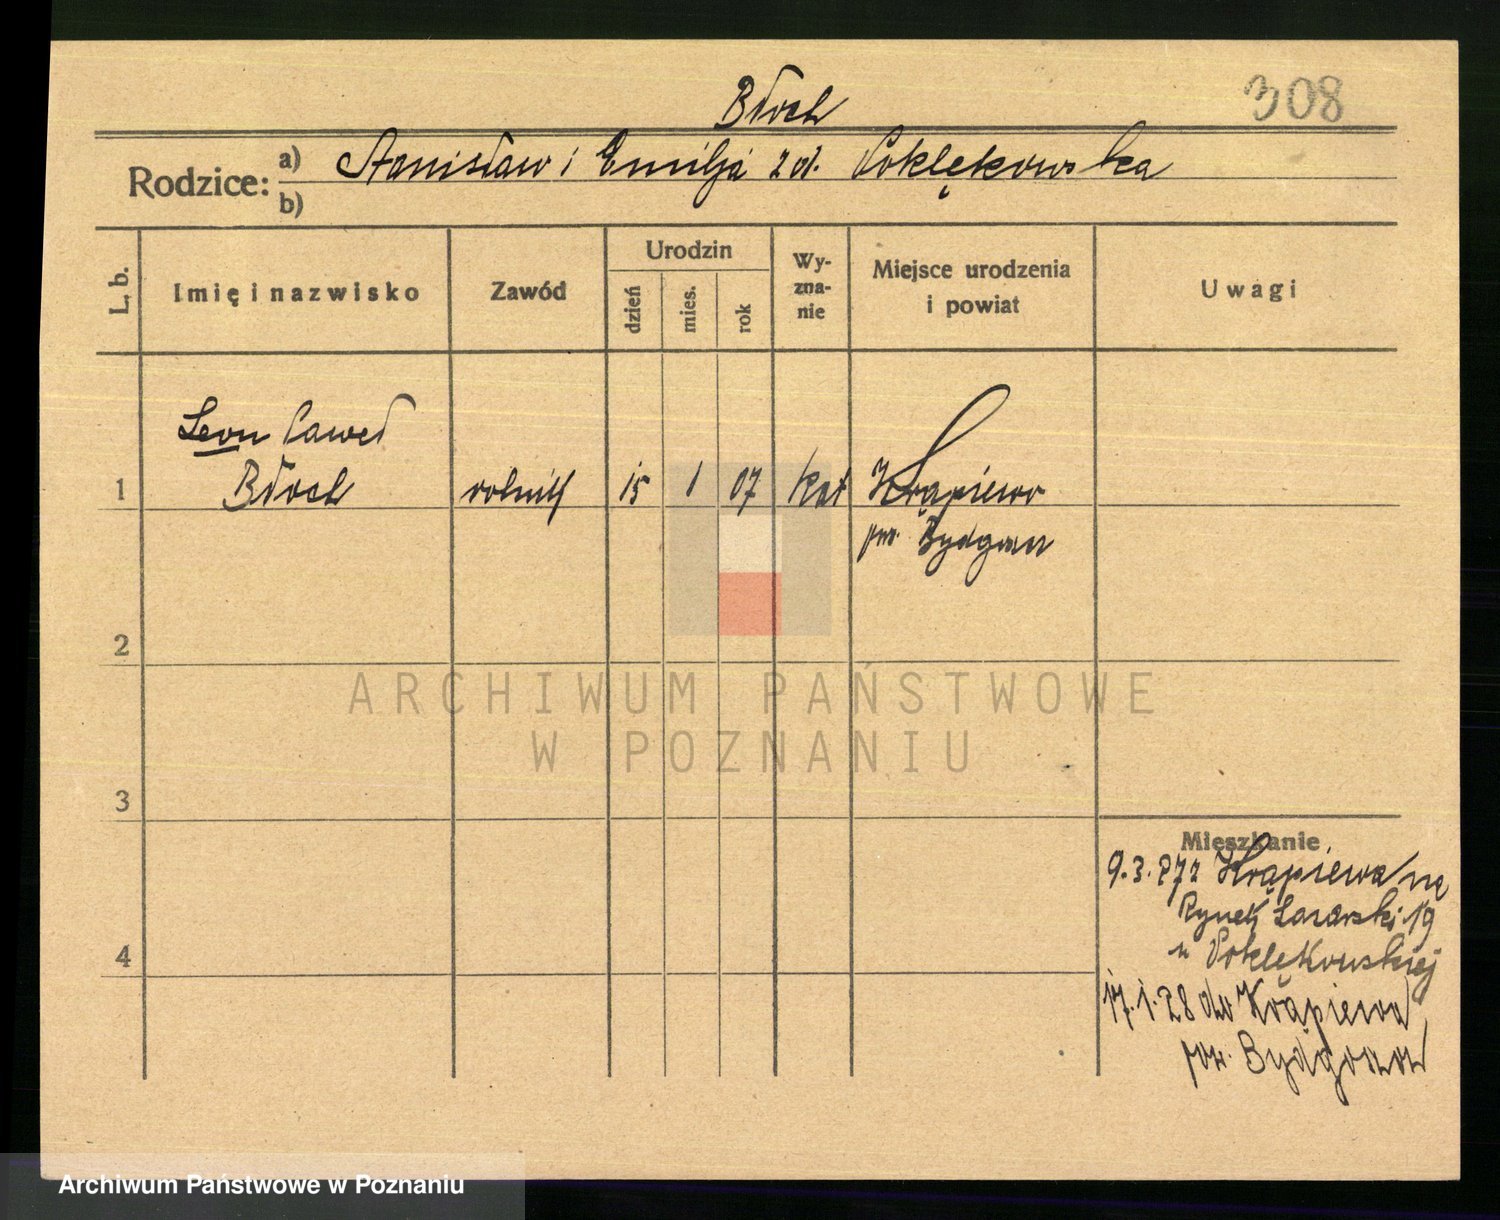 308
Błoch
Rodzice: a) Stanisław i Emilja z d. Poklękowska
b)
L. b. Imię i nazwisko Zawód Urodzin dzień mies. rok Wyzna-nie Miejsce urodzenia i powiat Uwagi
Leon Paweł
1 Błoch rolnik 15 1 07 kat Krąpiewo
pow. Bydgoszcz
2
ARCHIWUM PAŃSTWOWE
W POZNANIU
3
Mieszkanie
9.3.27 z Krąpiewa na
Rynek Łazarski 19
u Poklękowskiej
4
17.1.28 do Krąpiewa
pow. Bydgoszcz
Archiwum Państwowe w Poznaniu